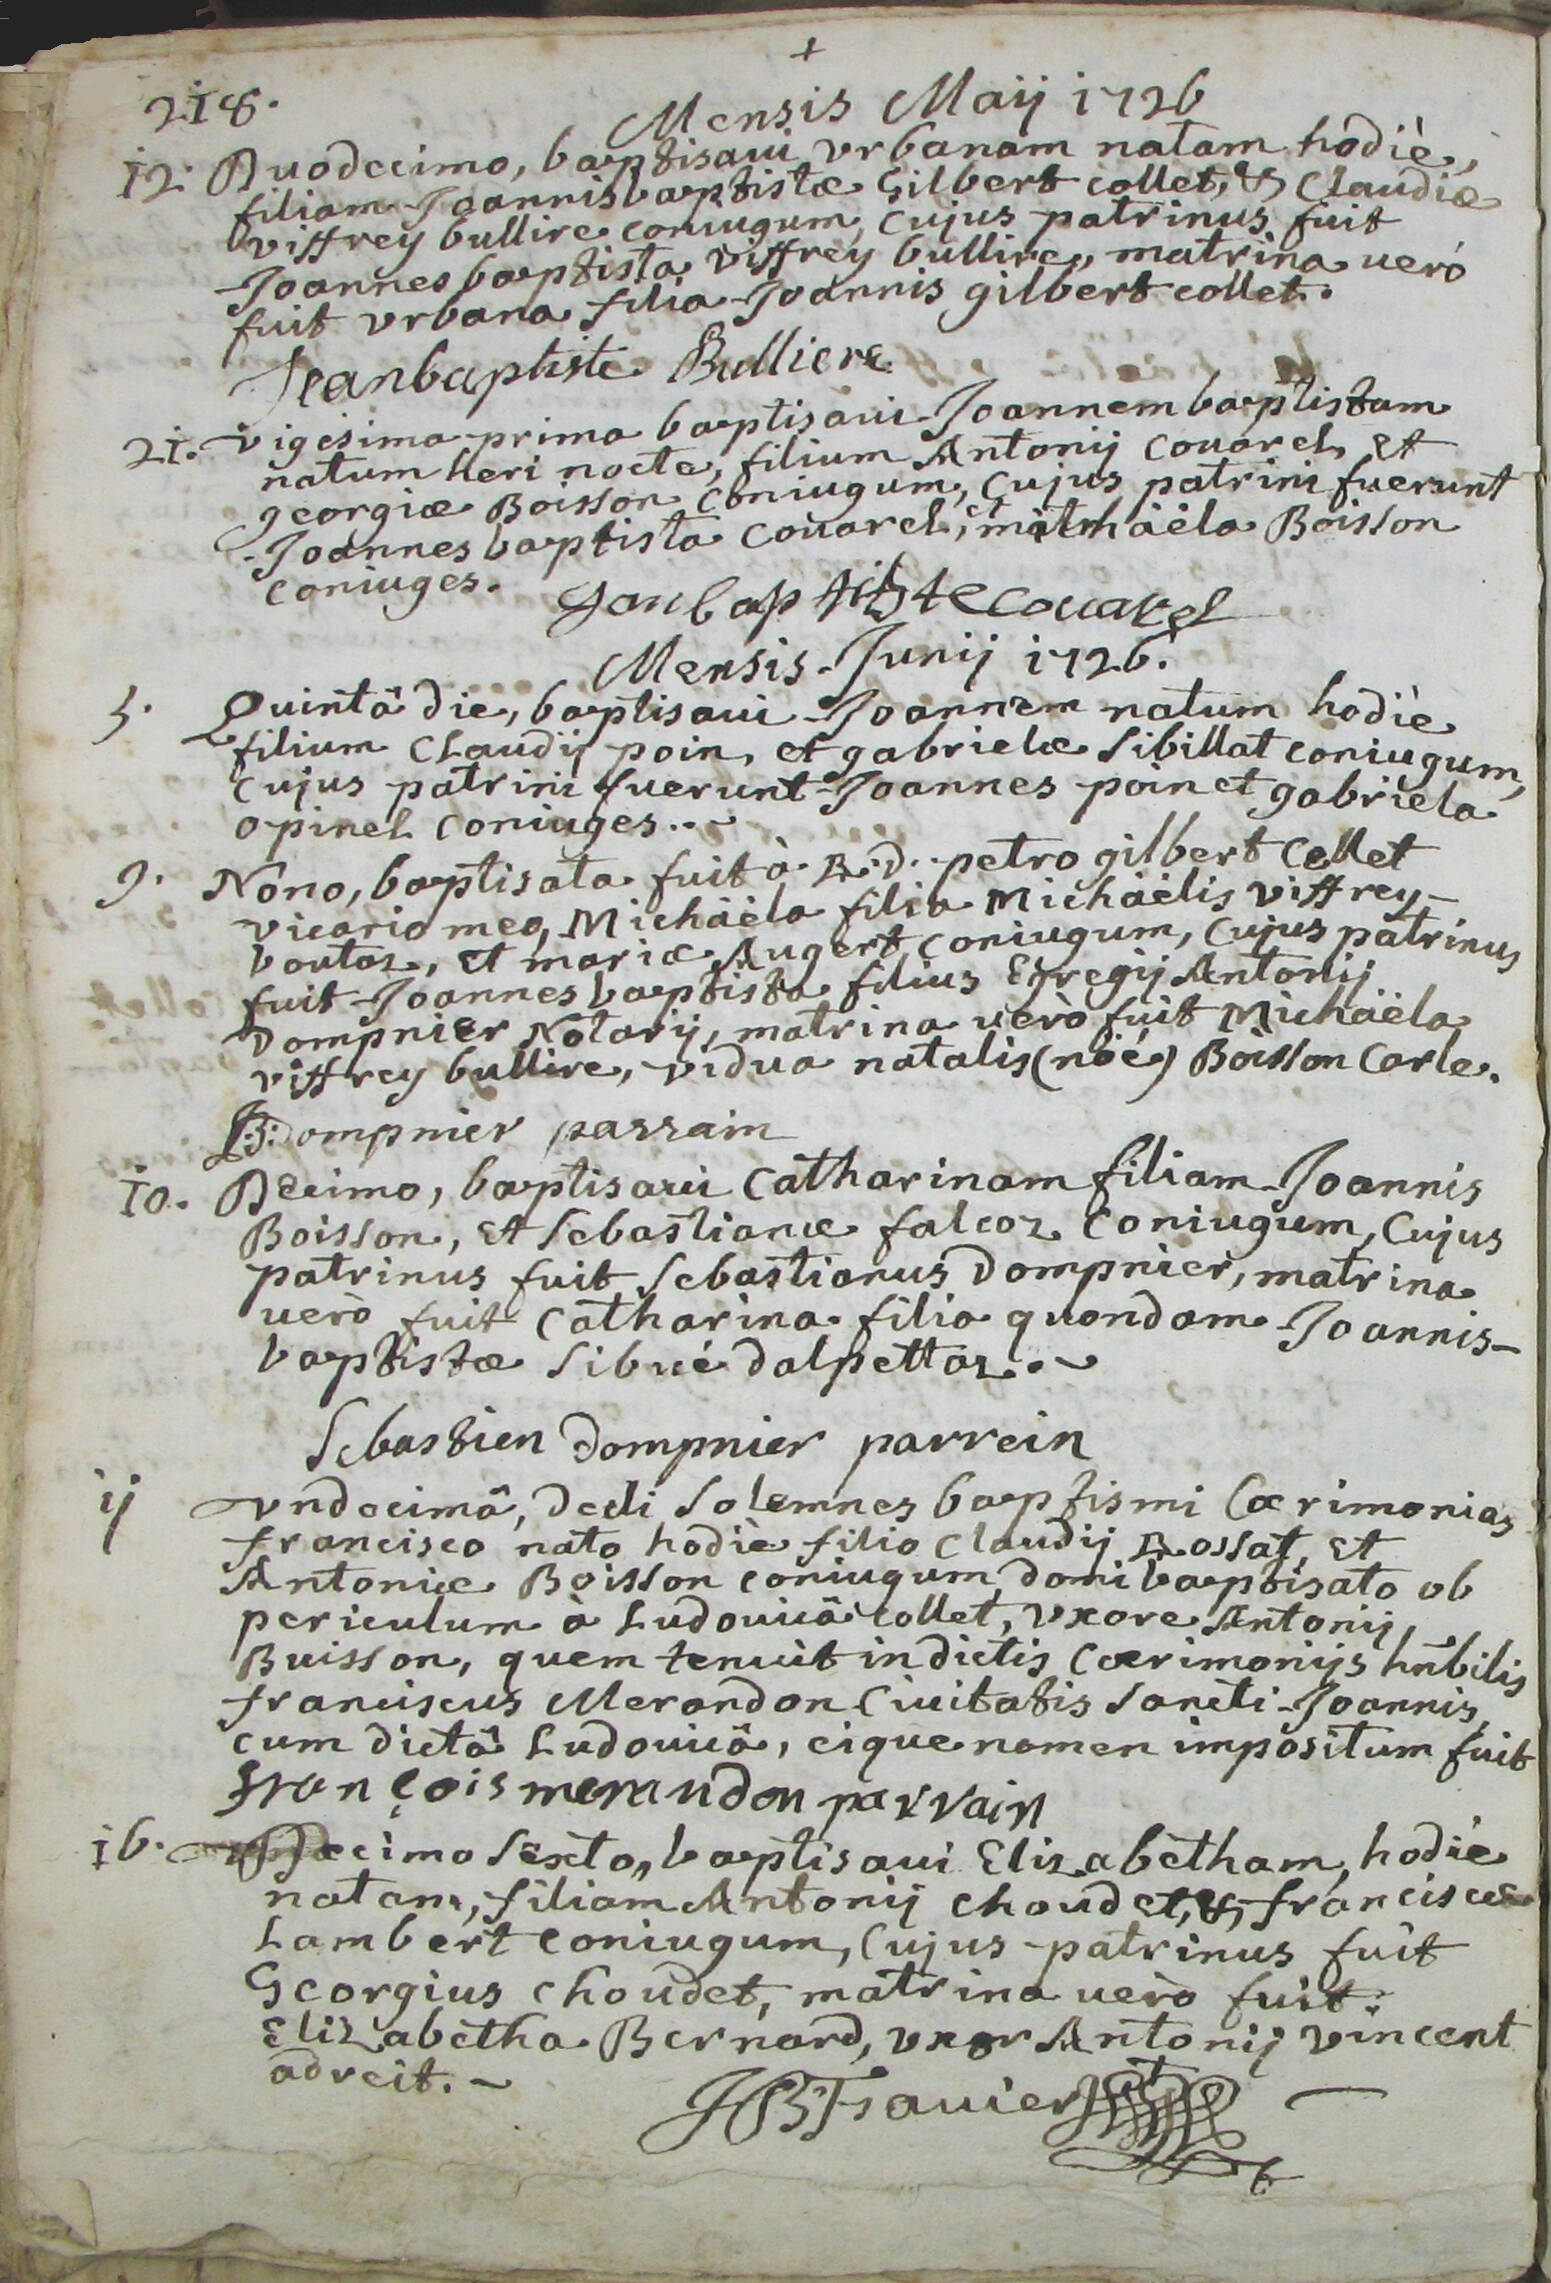 +
218.
Mensis Maij 1726
12. Duodecimo, baptisaui vrbanam natam hodiè,
filiam Joannisbaptistæ Gilbert collet, & Claudiæ
viffrey bullire coniugum, cujus patrinus fuit
Joannes baptista viffrey bullire, matrina uerò
fuit vrbana filia Joannis gilbert collet.
Jeanbaptiste Bulliere
21. vigesima prima baptisaui Joannem baptistam
natum heri nocte, filium Antonij Couarel, et
georgiæ Boisson Coniugum, Cujus patrini fuerunt
Joannes baptista Coüarel, et michäéla Boisson
coniuges.
Jan baptiste couarel
Mensis Junij 1726.
5. Quintâ die, baptisaui Joannem natum hodiè
filium Claudij poin, et gabrielæ Sibillat coniugum,
Cujus patrini fuerunt Joannes poin et gabriela
opinel Coniuges..
9. Nono, baptisata fuit à R.d. petro gilbert Collet
vicario meo, Michäéla filia Michäélis viffrey
boutaz, et mariæ Augert Coniugum, Cujus patrinus
fuit Joannes baptista filius Egregij Antonij
Dompnier Notarij, matrina uerò fuit Michäéla
viffrey bullire, vidua natalis (nöé) Boisson Carle.
JB: Dompnier parrain
10. Decimo, baptisaui Catharinam filiam Joannis
Boisson, et Sebastianæ falcoz Coniugum, Cujus
patrinus fuit Sebastianus Dompnier, matrina
uerò fuit Catharina filia quondam Joannis-
baptistæ Sibué dalpettaz.
Sebastien Dompnier parrein
ij vndecimâ, dedi Solemnes baptismi Cærimonias
francisco nato hodiè filio Claudij Rossat, et
Antoniæ Boisson coniugum, domi baptisato ob
periculum à Ludouicâ Collet, vxore Antonij
Buisson, quem tenuit in dictis Cærimonijs hnbilis
franciscus Merandon Ciuitatis Sancti Joannis,
cum dictâ Ludouicâ, eique nomen impositum fuit
françois merandon parrain
16. Decimo Sexto,, baptisaui Elizabetham, hodiè
natam, filiam Antonij choudet, & franciscæ
Lambert coniugum, Cujus patrinus fuit
Georgius Choudet, matrina uerò fuit
Elizabetha Bernard, vxor Antonij vincent
adreit.
JB Frauier